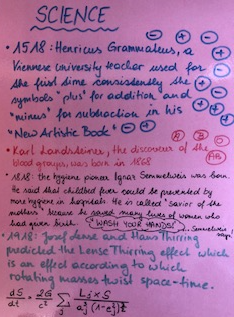 SCIENCE
• 1518: Henricus Grammateus, a
Viennese University teacher used for
the first time consistently the
symbols "plus" for addition and
"minus" for subtraction in his
"New Artistic Book"
A B O
AB
• Karl Landsteiner, the discoverer of the
blood groups, was born in 1868
• 1818: the hygiene pioneer Ignaz Semmelweis was born.
He said that childbed fever could be prevented by
more hygiene in hospitals. He is called "savior of the
mothers" because he saved many lives of women who
had given birth. "WASH YOUR HANDS!" Semmelweis
says.
• 1918: Josef Lense and Hans Thirring
predicted the Lense Thirring effect which
is an effect according to which
rotating masses twist space-time.